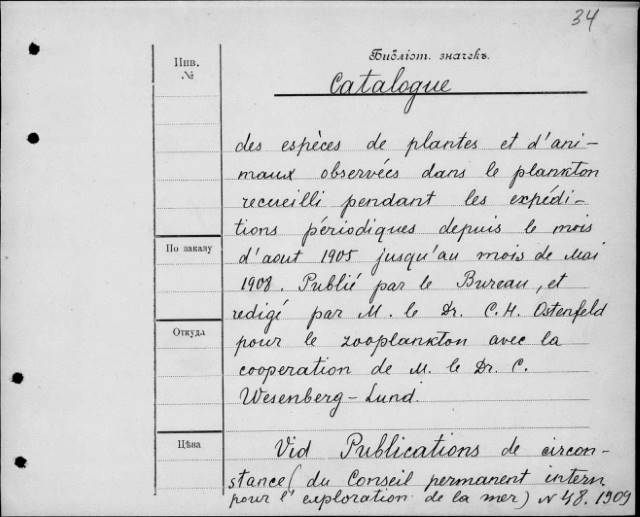 34
Инв.
№
Библіот. значекъ.
Catalogue
des espèces de plantes et d'ani-
maux observées dans le plankton
recueilli pendant les expédi-
tions périodiques depuis le mois
По заказу
d'aout 1905 jusqu'au mois de Mai
1908. Publié par le Bureau, et
redigé par M. le Dr. C. H. Ostenfeld
Откуда
pour le zooplankton avec la
cooperation de M. le Dr. C.
Wesenberg-Lund.
Цѣна
Vid Publications de circon-
stance (du Conseil permanent intern
pour l'exploration de la mer) N 48. 1909